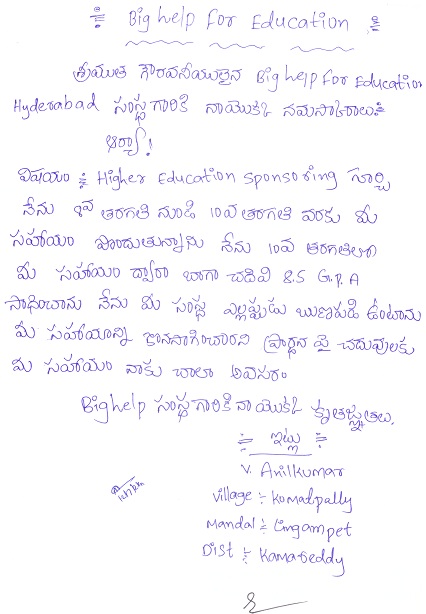 Big help For Education
శ్రీయుత గౌరవనీయులైన Big help For Education
Hyderabad సంస్థ గారికి నా యొక్క నమస్కారాలు :
ఆర్యా!
విషయం : Higher Education sponsoring గూర్చి
నేను 8వ తరగతి నుండి 10వ తరగతి వరకు మీ
సహాయం పొందుతున్నాను నేను 10వ తరగతిలో
మీ సహాయం ద్వారా బాగా చదివి 8.5 G.P.A
సాధించాను నేను మీ సంస్థ ఎల్లప్పుడు ఋణపడి ఉంటాను
మీ సహాయాన్ని కొనసాగించారని ప్రార్థన పై చదువులకు
మీ సహాయం నాకు చాలా అవసరం
Big help సంస్థ గారికి నా యొక్క కృతజ్ఞతలు.
ఇట్లు
V. Anilkumar
Village :- Komatpally
Mandal :- Lingampet
Dist :- Kamareddy